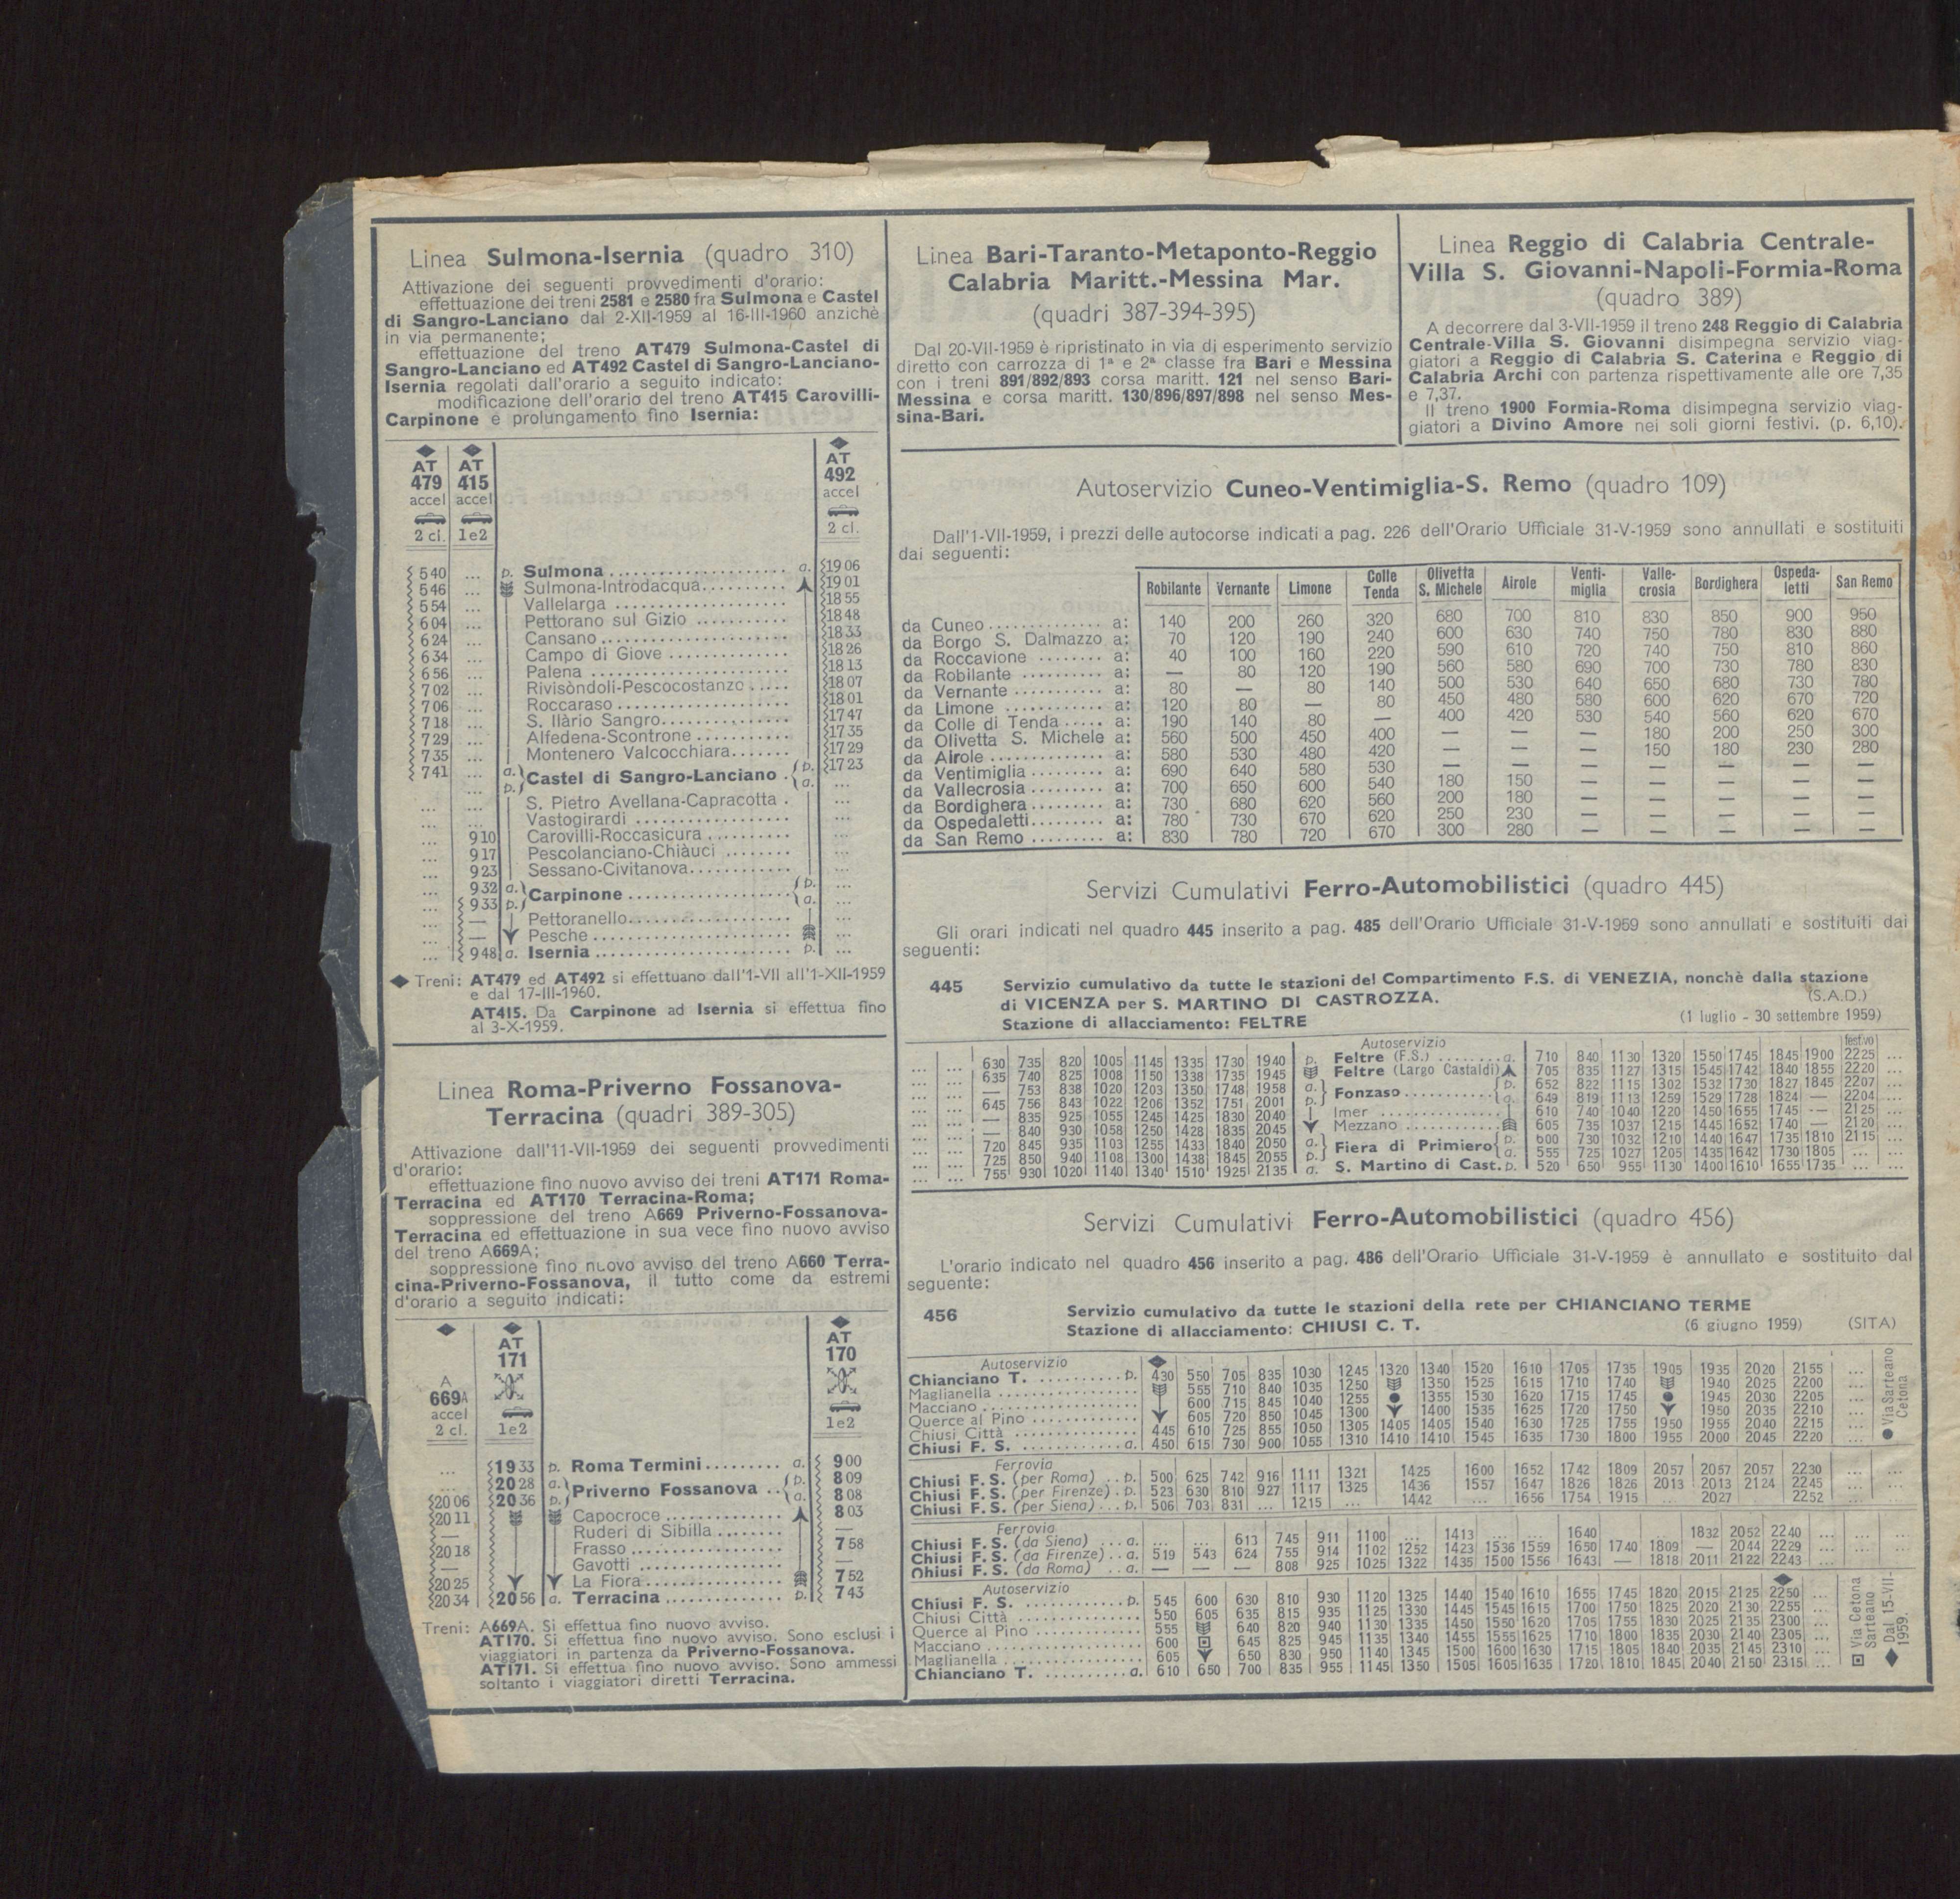 Linea Sulmona-Isernia (quadro 310)
Attivazione dei seguenti provvedimenti d'orario:
effettuazione dei treni 2581 e 2580 fra Sulmona e Castel
di Sangro-Lanciano dal 2-XII-1959 al 16-III-1960 anzichè
in via permanente;
effettuazione del treno AT479 Sulmona-Castel di
Sangro-Lanciano ed AT492 Castel di Sangro-Lanciano-
Isernia regolati dall'orario a seguito indicato:
modificazione dell'orario del treno AT415 Carovilli-
Carpinone e prolungamento fino Isernia:
◆ ◆ ◆
AT AT AT
479 415 492
accel accel accel
2 cl. 1e2 2 cl.
5 40 ... p. Sulmona a. 19 06
5 46 ... Sulmona-Introdacqua 19 01
5 54 ... Vallelarga 18 55
6 04 ... Pettorano sul Gizio 18 48
6 24 ... Cansano 18 33
6 34 ... Campo di Giove 18 26
6 56 ... Palena 18 13
7 02 ... Rivisòndoli-Pescocostanzo 18 07
7 06 ... Roccaraso 18 01
7 18 ... S. Ilàrio Sangro 17 47
7 29 ... Alfedena-Scontrone 17 35
7 35 ... Montenero Valcocchiara 17 29
7 41 ... a. p. Castel di Sangro-Lanciano p. a. 17 23
... ... S. Pietro Avellana-Capracotta ...
... ... Vastogirardi ...
... 9 10 Carovilli-Roccasicura ...
... 9 17 Pescolanciano-Chiàuci ...
... 9 23 Sessano-Civitanova ...
... 9 32 a. Carpinone p. ...
... 9 33 p. a. ...
... — Pettoranello ...
... — Pesche ...
... 9 48 a. Isernia p. ...
◆ Treni: AT479 ed AT492 si effettuano dall'1-VII all'1-XII-1959
e dal 17-III-1960.
AT415. Da Carpinone ad Isernia si effettua fino
al 3-X-1959.
Linea Roma-Priverno Fossanova-
Terracina (quadri 389-305)
Attivazione dall'11-VII-1959 dei seguenti provvedimenti
d'orario:
effettuazione fino nuovo avviso dei treni AT171 Roma-
Terracina ed AT170 Terracina-Roma;
soppressione del treno A669 Priverno-Fossanova-
Terracina ed effettuazione in sua vece fino nuovo avviso
del treno A669A;
soppressione fino nuovo avviso del treno A660 Terra-
cina-Priverno-Fossanova, il tutto come da estremi
d'orario a seguito indicati:
◆ ◆ ◆
AT AT
171 170
A
669A
accel
2 cl. 1e2 1e2
... 19 33 p. Roma Termini a. 9 00
... 20 28 a. Priverno Fossanova p. 8 09
20 06 20 36 p. a. 8 08
20 11 Capocroce 8 03
— Ruderi di Sibilla —
20 18 Frasso 7 58
— Gavotti —
20 25 La Fiora 7 52
20 34 20 56 a. Terracina p. 7 43
Treni: A669A. Si effettua fino nuovo avviso.
AT170. Si effettua fino nuovo avviso. Sono esclusi i
viaggiatori in partenza da Priverno-Fossanova.
AT171. Si effettua fino nuovo avviso. Sono ammessi
soltanto i viaggiatori diretti Terracina.
Linea Bari-Taranto-Metaponto-Reggio
Calabria Maritt.-Messina Mar.
(quadri 387-394-395)
Dal 20-VII-1959 è ripristinato in via di esperimento servizio
diretto con carrozza di 1ª e 2ª classe fra Bari e Messina
con i treni 891/892/893 corsa maritt. 121 nel senso Bari-
Messina e corsa maritt. 130/896/897/898 nel senso Mes-
sina-Bari.
Linea Reggio di Calabria Centrale-
Villa S. Giovanni-Napoli-Formia-Roma
(quadro 389)
A decorrere dal 3-VII-1959 il treno 248 Reggio di Calabria
Centrale-Villa S. Giovanni disimpegna servizio viag-
giatori a Reggio di Calabria S. Caterina e Reggio di
Calabria Archi con partenza rispettivamente alle ore 7,35
e 7,37.
Il treno 1900 Formia-Roma disimpegna servizio viag-
giatori a Divino Amore nei soli giorni festivi. (p. 6,10).
Autoservizio Cuneo-Ventimiglia-S. Remo (quadro 109)
Dall'1-VII-1959, i prezzi delle autocorse indicati a pag. 226 dell'Orario Ufficiale 31-V-1959 sono annullati e sostituiti
dai seguenti:
Robilante Vernante Limone Colle Tenda Olivetta S. Michele Airole Venti-miglia Valle-crosia Bordighera Ospeda-letti San Remo
da Cuneo a: 140 200 260 320 680 700 810 830 850 900 950
da Borgo S. Dalmazzo a: 70 120 190 240 600 630 740 750 780 830 880
da Roccavione a: 40 100 160 220 590 610 720 740 750 810 860
da Robilante a: — 80 120 190 560 580 690 700 730 780 830
da Vernante a: 80 — 80 140 500 530 640 650 680 730 780
da Limone a: 120 80 — 80 450 480 580 600 620 670 720
da Colle di Tenda a: 190 140 80 — 400 420 530 540 560 620 670
da Olivetta S. Michele a: 560 500 450 400 — — — 180 200 250 300
da Airole a: 580 530 480 420 — — — 150 180 230 280
da Ventimiglia a: 690 640 580 530 — — — — — — —
da Vallecrosia a: 700 650 600 540 180 150 — — — — —
da Bordighera a: 730 680 620 560 200 180 — — — — —
da Ospedaletti a: 780 730 670 620 250 230 — — — — —
da San Remo a: 830 780 720 670 300 280 — — — — —
Servizi Cumulativi Ferro-Automobilistici (quadro 445)
Gli orari indicati nel quadro 445 inserito a pag. 485 dell'Orario Ufficiale 31-V-1959 sono annullati e sostituiti dai
seguenti:
445 Servizio cumulativo da tutte le stazioni del Compartimento F.S. di VENEZIA, nonchè dalla stazione
di VICENZA per S. MARTINO DI CASTROZZA. (S.A.D.)
Stazione di allacciamento: FELTRE (1 luglio - 30 settembre 1959)
Autoservizio festivo
... ... 630 735 820 1005 1145 1335 1730 1940 p. Feltre (F.S.) a. 710 840 1130 1320 1550 1745 1845 1900 2225 ...
... ... 635 740 825 1008 1150 1338 1735 1945 Feltre (Largo Castaldi) 705 835 1127 1315 1545 1742 1840 1855 2220 ...
... ... — 753 838 1020 1203 1350 1748 1958 a. Fonzaso p. 652 822 1115 1302 1532 1730 1827 1845 2207 ...
... ... 645 756 843 1022 1206 1352 1751 2001 p. a. 649 819 1113 1259 1529 1728 1824 — 2204 ...
... ... — 835 925 1055 1245 1425 1830 2040 Imer 610 740 1040 1220 1450 1655 1745 — 2125 ...
... ... — 840 930 1058 1250 1428 1835 2045 Mezzano 605 735 1037 1215 1445 1652 1740 — 2120 ...
... ... 720 845 935 1103 1255 1433 1840 2050 a. Fiera di Primiero p. 600 730 1032 1210 1440 1647 1735 1810 2115 ...
... ... 725 850 940 1108 1300 1438 1845 2055 p. a. 555 725 1027 1205 1435 1642 1730 1805 ... ...
... ... 755 930 1020 1140 1340 1510 1925 2135 a. S. Martino di Cast. p. 520 650 955 1130 1400 1610 1655 1735 ... ...
Servizi Cumulativi Ferro-Automobilistici (quadro 456)
L'orario indicato nel quadro 456 inserito a pag. 486 dell'Orario Ufficiale 31-V-1959 è annullato e sostituito dal
seguente:
456 Servizio cumulativo da tutte le stazioni della rete per CHIANCIANO TERME
Stazione di allacciamento: CHIUSI C. T. (6 giugno 1959) (SITA)
Autoservizio ◆
Chianciano T. p. 430 550 705 835 1030 1245 1320 1340 1520 1610 1705 1735 1905 1935 2020 2155 ...
Maglianella 555 710 840 1035 1250 1350 1525 1615 1710 1740 1940 2025 2200 ...
Macciano 600 715 845 1040 1255 ● 1355 1530 1620 1715 1745 ● 1945 2030 2205 ...
Querce al Pino 605 720 850 1045 1300 1400 1535 1625 1720 1750 1950 2035 2210 ...
Chiusi Città 445 610 725 855 1050 1305 1405 1405 1540 1630 1725 1755 1950 1955 2040 2215 ...
Chiusi F. S. a. 450 615 730 900 1055 1310 1410 1410 1545 1635 1730 1800 1955 2000 2045 2220 ...
● Via Sarteano
Cetona
Ferrovia
Chiusi F. S. (per Roma) p. 500 625 742 916 1111 1321 1425 1600 1652 1742 1809 2057 2057 2057 2230 ... ...
Chiusi F. S. (per Firenze) p. 523 630 810 927 1117 1325 1436 1557 1647 1826 1826 2013 2013 2124 2245 ... ...
Chiusi F. S. (per Siena) p. 506 703 831 ... 1215 ... 1442 ... 1656 1754 1915 ... 2027 2252 ...
Ferrovia
Chiusi F. S. (da Siena) a. ... ... 613 745 911 1100 ... 1413 ... ... 1640 ... 1832 2052 2240 ... ... ...
Chiusi F. S. (da Firenze) a. 519 543 624 755 914 1102 1252 1423 1536 1559 1650 1740 1809 — 2044 2229 ... ... ...
Chiusi F. S. (da Roma) a. — — — 808 925 1025 1322 1435 1500 1556 1643 — 1818 2011 2122 2243 ...
Autoservizio ◆
Chiusi F. S. p. 545 600 630 810 930 1120 1325 1440 1540 1610 1655 1745 1820 2015 2125 2250 ...
Chiusi Città 550 605 635 815 935 1125 1330 1445 1545 1615 1700 1750 1825 2020 2130 2255 ...
Querce al Pino 555 640 820 940 1130 1335 1450 1550 1620 1705 1755 1830 2025 2135 2300 ...
Macciano 600 645 825 945 1135 1340 1455 1555 1625 1710 1800 1835 2030 2140 2305 ...
Maglianella 605 650 830 950 1140 1345 1500 1600 1630 1715 1805 1840 2035 2145 2310 ...
Chianciano T. a. 610 650 700 835 955 1145 1350 1505 1605 1635 1720 1810 1845 2040 2150 2315 ...
Via Cetona
Sarteano
◆ Dal 15-VII-
1959.